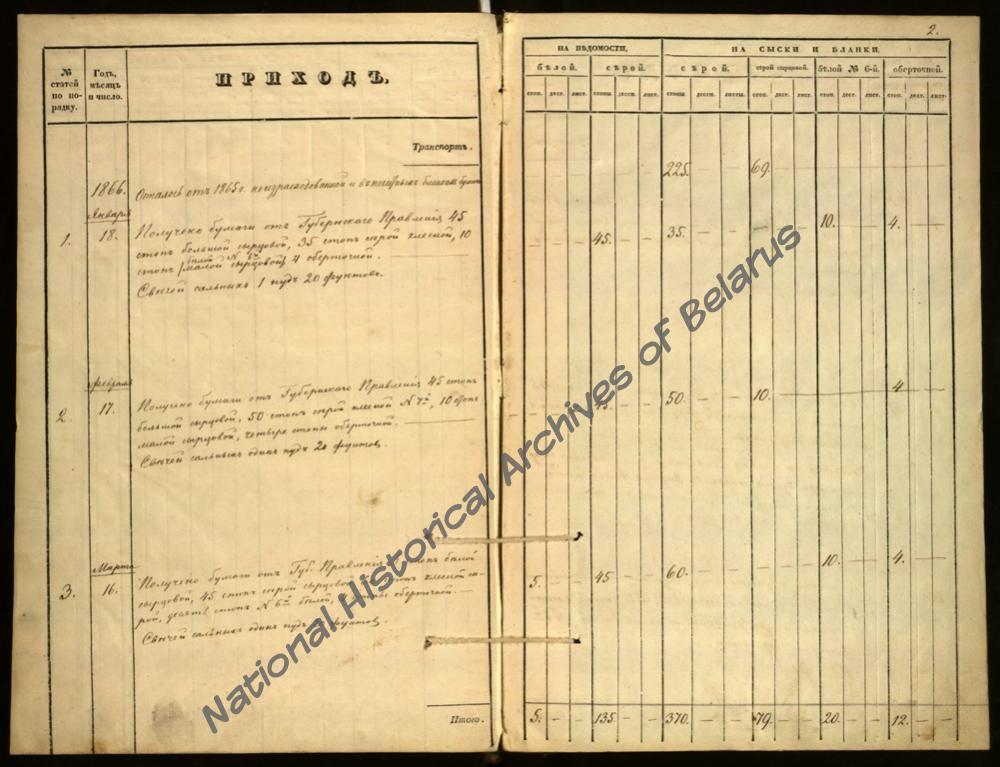 2.
№ статей по порядку.
Годъ, мѣсяцъ и число.
ПРИХОДЪ.
НА ВѢДОМОСТИ.
НА СЫСКИ И БЛАНКИ.
бѣлой. сѣрой. сѣрой. сѣрой сырцовой. бѣлой № 6-й. оберточной.
стоп. дест. лист. стопы. десть. лист. стопы. дести. листы. стоп. дест. лист. стоп. дест. лист. стоп. дест. лист.
Транспортъ.
1866. Осталось отъ 1865 г. неизрасходованной и
225. 69.
Января
1. 18. Получено бумаги отъ Губернскаго Правленія 45
стопъ большой сырцовой, 35 стопъ сѣрой клееной, 10
бѣлой N. 6й
стопъ малой сырцовой 4 оберточной.
Свѣчей сальныхъ 1 пудъ 20 фунтовъ.
45. 35. 10. 4.
Февраля
2. 17. Получено бумаги отъ Губернскаго Правленія 45 стопъ
большой сырцовой, 50 стопъ сѣрой клееной N 7й, 10 стопъ
малой сырцовой, четыре стопы оберточной.
Свѣчей сальныхъ одинъ пудъ 20 фунтов.
50. 10. 4.
Марта
3. 16. Получено бумаги отъ Губ. Правленія стопъ бѣлой
сырцовой, 45 стопъ сѣрой сырцовой клееной сѣ-
рой, десять стопъ N 6й бѣлой, стопы оберточной.
Свѣчей сальныхъ одинъ пудъ фунтов.
5. 45 60. 10. 4.
Итого. 5. 135. 370. 79. 20. 12.
National Historical Archives of Belarus